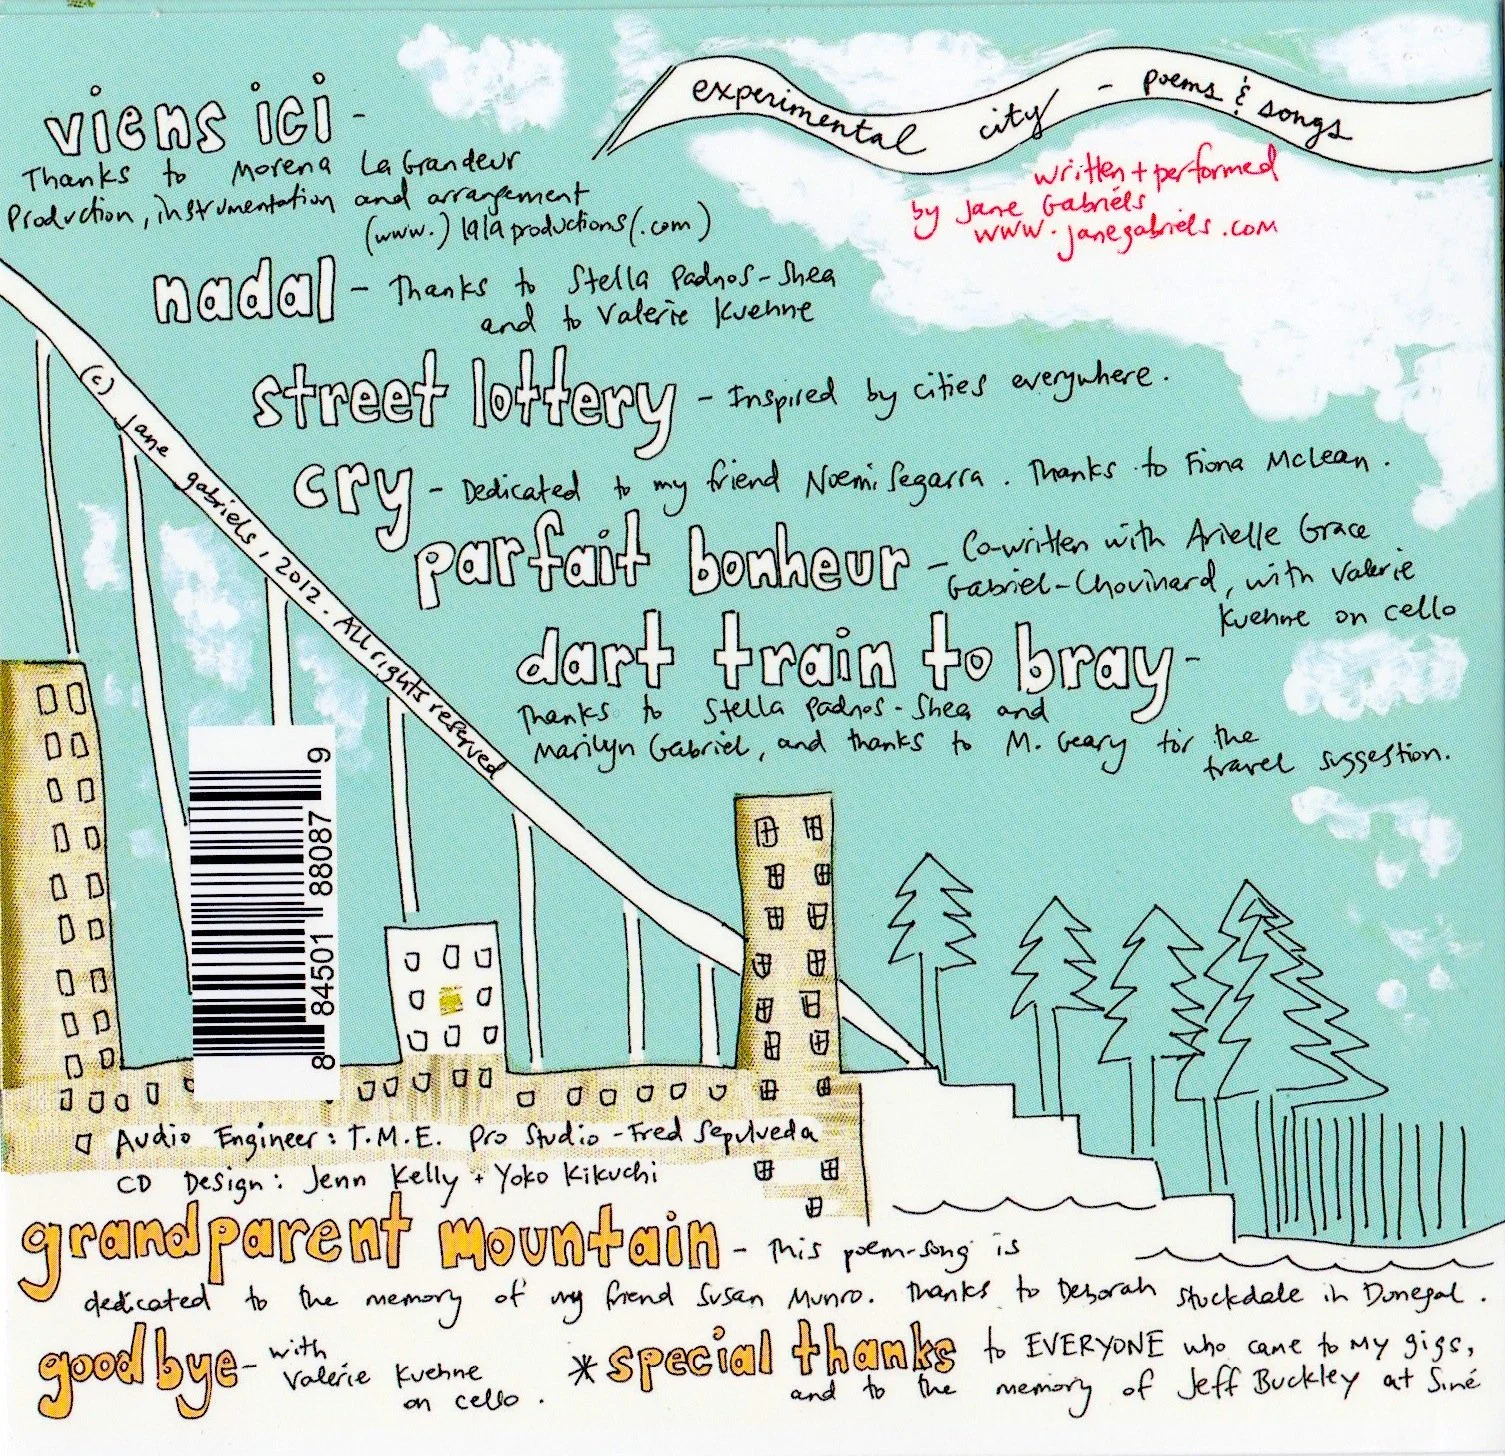 experimental city - poems & songs
written + performed
by Jane Gabriels
www.janegabriels.com
viens ici -
Thanks to Morena La Grandeur
Production, instrumentation and arrangement
(www.) lalaproductions (.com)
nadal - Thanks to Stella Padnos-Shea
and to Valerie Kuehne
street lottery - Inspired by cities everywhere.
cry - Dedicated to my friend Noemi Segarra. Thanks to Fiona McLean.
parfait bonheur - Co-written with Arielle Grace
Gabriel-Chouinard, with Valerie
Kuehne on cello
dart train to bray -
Thanks to Stella Padnos-Shea and
Marilyn Gabriel, and thanks to M. Geary for the
travel suggestion.
(c) jane gabriels, 2012. All rights reserved
8 84501 88087 9
Audio Engineer: T.M.E. Pro Studio - Fred Sepulveda
CD Design: Jenn Kelly + Yoko Kikuchi
grandparent mountain - This poem-song is
dedicated to the memory of my friend Susan Munro. Thanks to Deborah Stockdale in Donegal.
goodbye - with
Valerie Kuehne
on cello.
* special thanks to EVERYONE who came to my gigs,
and to the memory of Jeff Buckley at Siné